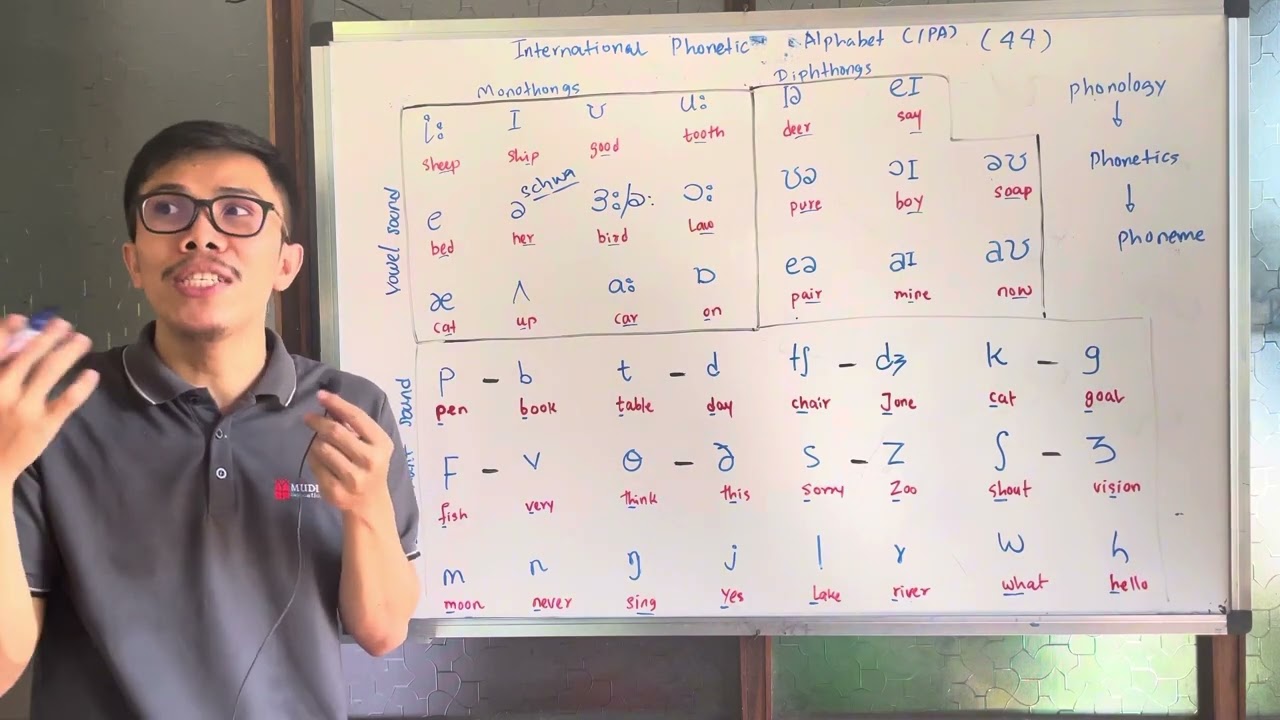 International Phonetic Alphabet (IPA) (44)
Monothongs
Diphthongs
i: I ʊ u: Iə eI
sheep ship good tooth deer say
schwa
e ə ɜ:/ə: ɔ: ʊə ɔI əʊ
bed her bird law pure boy soap
æ ʌ a: ɒ eə aI aʊ
cat up car on pair mine now
Vowel sound
phonology
↓
Phonetics
↓
phoneme
p – b t – d tʃ – dʒ k – g
pen book table day chair Jone cat goal
F – v θ – ð s – z ʃ – ʒ
fish very think this sorry Zoo shout vision
m n ŋ j l r w h
moon never sing yes Lake river what hello
sound